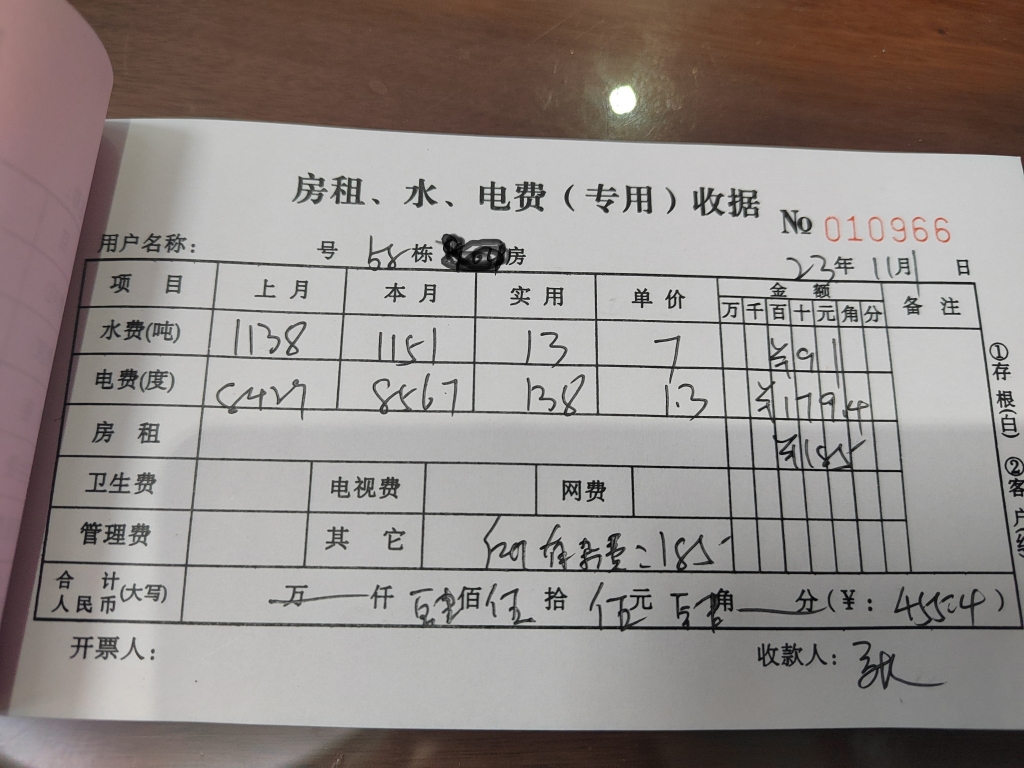 房租、水、电费(专用)收据
№ 010966
用户名称: 号 58 栋 房
23年 11月 1日
项 目 上 月 本 月 实 用 单 价 金 额 备 注
万 千 百 十 元 角 分
水费(吨) 1138 1151 13 7 ¥91
电费(度) 8429 8567 138 1.3 ¥179.4
房 租 ¥185
卫生费 电视费 网费
管理费 其 它 =185
合 计 人民币 (大写) 万 仟 佰伍 拾 伍元 角 分(¥: 455.4)
开票人: 收款人: 张
①存根(白) ②客户(红